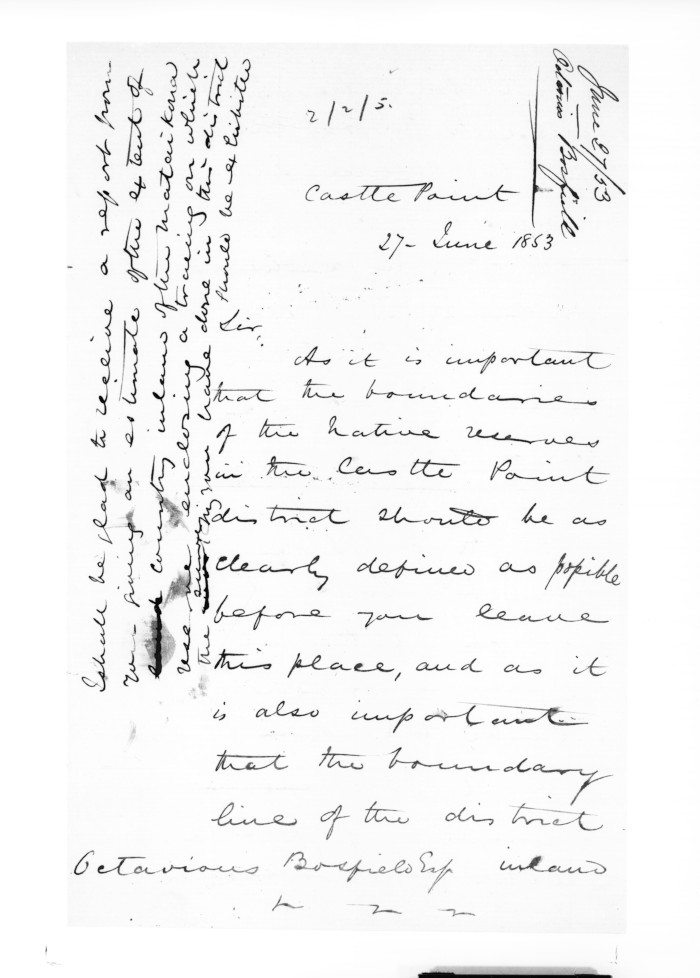 2/2/5.
June 27/53
Octavius Bosfield
Castle Point
27 - June 1853
Sir,
As it is important
that the boundaries
of the Native reserves
in the Castle Point
district should be as
clearly defined as possible
before you leave
this place, and as it
is also important
that the boundary
line of the district
Octavious Bosfield Esq inland
I shall be glad to receive a report from
you giving an estimate of the extent of
country inland of the Mataikona
reserve enclosing a tracing on which
the survey you have done in this district
should be exhibited